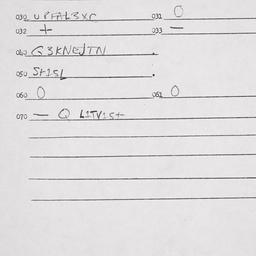 030 UPFAL3XC 031 O
032 + 033 —
040 Q3KNEJTN .
050 SH1SL .
060 O 061 O
070 — Q L1TV1S+